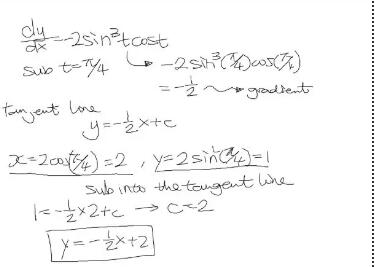 dy/dx = -2sin³tcost
sub t=π/4 → -2sin³(π/4)cos(π/4)
= -1/2 → gradient
tangent line
y=-1/2x+c
x=2cot(π/4)=2, y=2sin²(π/4)=1
sub into the tangent line
1=-1/2×2+c → c=2
y=-1/2x+2